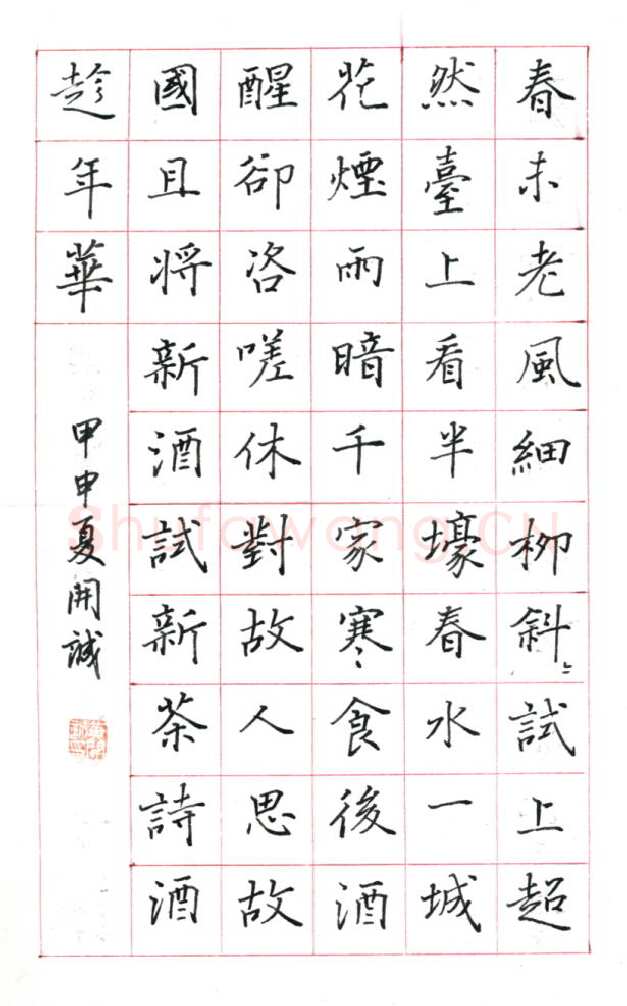 春未老風細柳斜〻試上超
然臺上看半壕春水一城
花煙雨暗千家寒食後酒
醒卻咨嗟休對故人思故
國且将新酒試新茶詩酒
趁年華
甲申夏開誠
Shufawang.CN